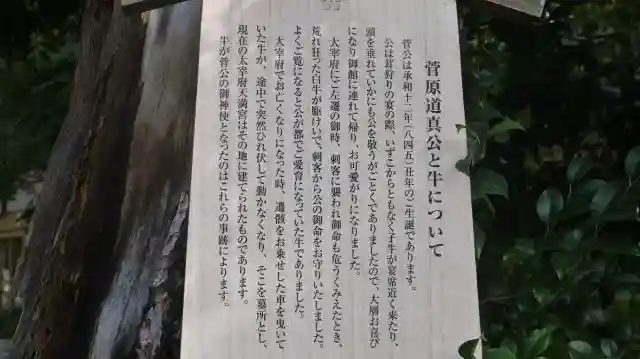 菅原道真公と牛について
菅公は承和十二年(八四五)丑年のご生誕であります。
公は茸狩りの宴の際、いずこからともなく子牛が宴席近く来たり、
頭を垂れていかにも公を敬うがごとくでありましたので、大層お喜び
になり御館に連れて帰り、お可愛がりになりました。
太宰府にご左遷の御時、刺客に襲われ御命も危うくみえたとき、
荒れ狂った白牛が駆けいで、刺客から公の御命をお守りいたしました。
よくご覧になると公が都でご愛育になっていた牛でありました。
太宰府でお亡くなりになった時、遺骸をお乗せした車を曳いて
いた牛が、途中で突然ひれ伏して動かなくなり、そこを墓所とし、
現在の太宰府天満宮はその地に建てられたものであります。
牛が菅公の御神使となったのはこれらの事跡によります。